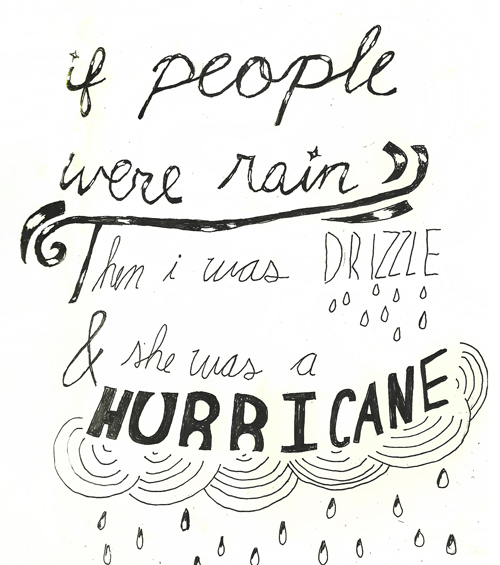 if people
were rain
Then i was DRIZZLE
& she was a
HURRICANE